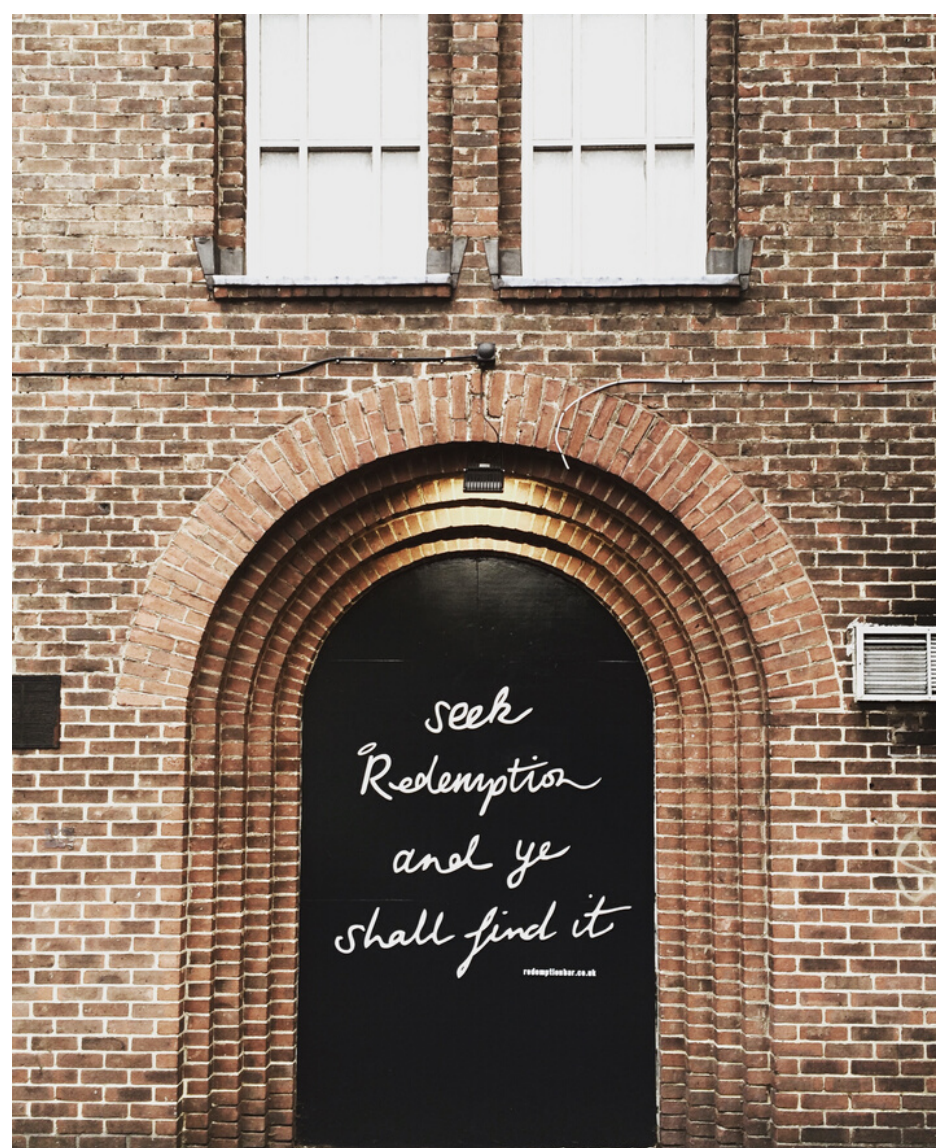 seek
Redemption
and ye
shall find it
redemptionbar.co.uk